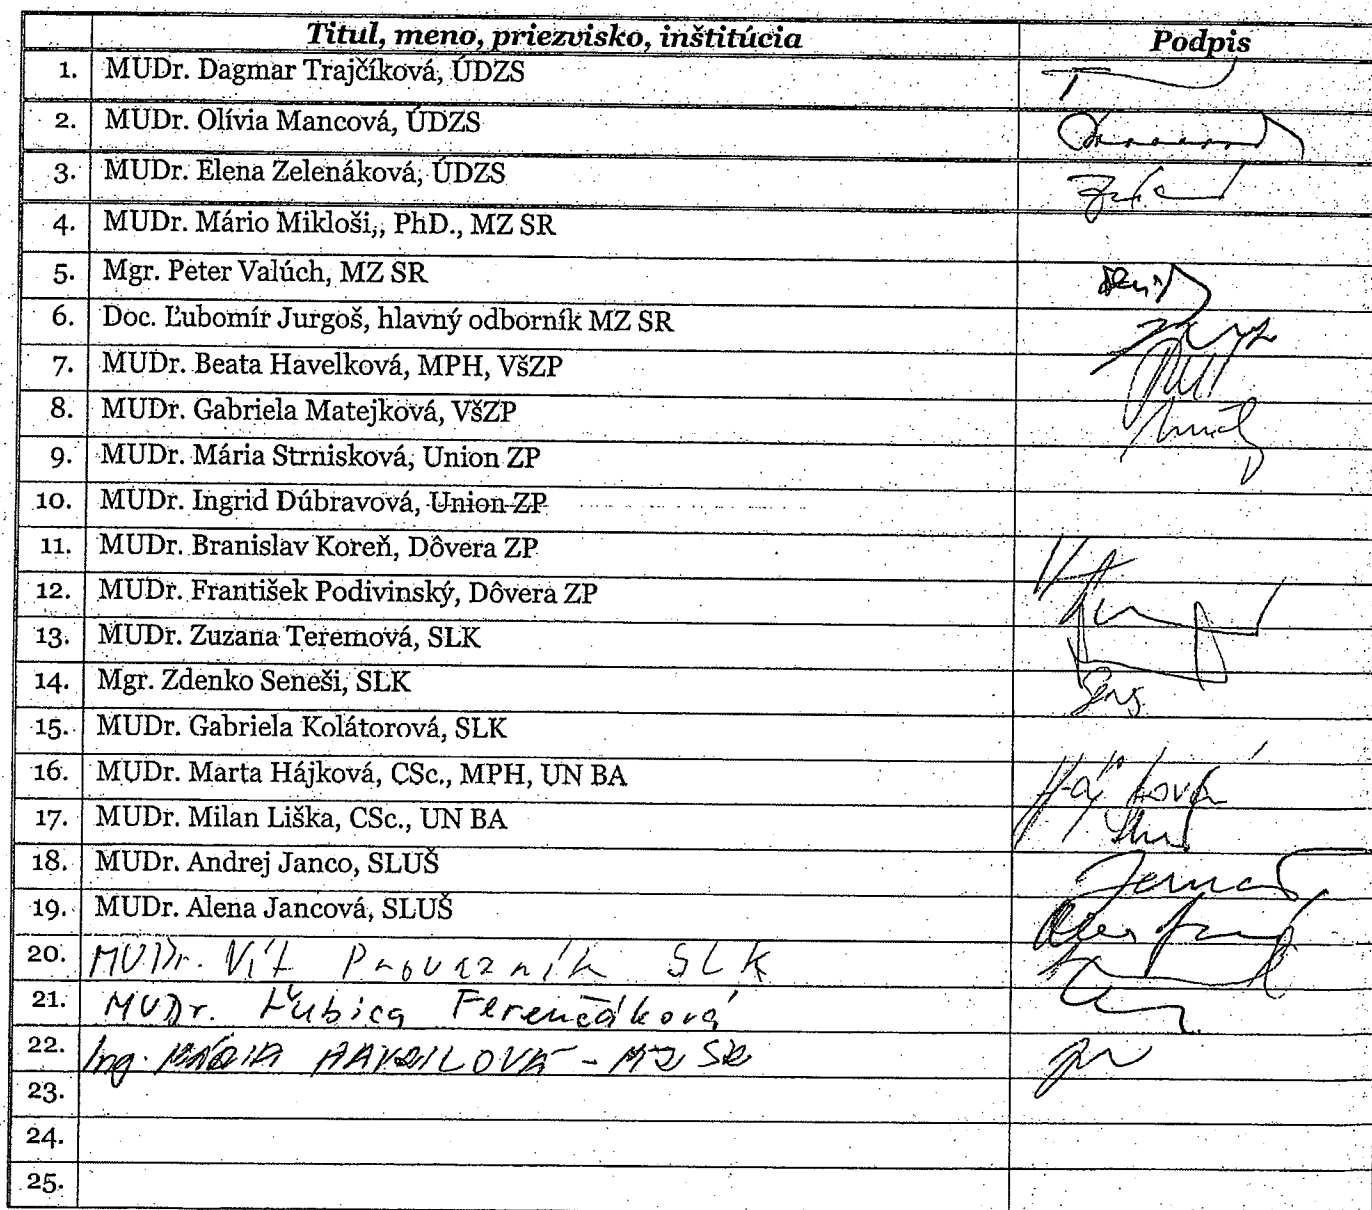 Titul, meno, priezvisko, inštitúcia Podpis
1. MUDr. Dagmar Trajčíková, ÚDZS
2. MUDr. Olívia Mancová, ÚDZS
3. MUDr. Elena Zelenáková, ÚDZS
4. MUDr. Mário Mikloši,, PhD., MZ SR
5. Mgr. Peter Valúch, MZ SR
6. Doc. Ľubomír Jurgoš, hlavný odborník MZ SR
7. MUDr. Beata Havelková, MPH, VšZP
8. MUDr. Gabriela Matejková, VšZP
9. MUDr. Mária Strnisková, Union ZP
10. MUDr. Ingrid Dúbravová, Union ZP
11. MUDr. Branislav Koreň, Dôvera ZP
12. MUDr. František Podivinský, Dôvera ZP
13. MUDr. Zuzana Teremová, SLK
14. Mgr. Zdenko Seneši, SLK
15. MUDr. Gabriela Kolátorová, SLK
16. MUDr. Marta Hájková, CSc., MPH, UN BA Hájková
17. MUDr. Milan Liška, CSc., UN BA
18. MUDr. Andrej Janco, SLUŠ
19. MUDr. Alena Jancová, SLUŠ
20. MUDr. Vít Provazník SLK
21. MUDr. Ľubica Ferenčáková
22. Ing. MÁRIA - MZ SR
23.
24.
25.